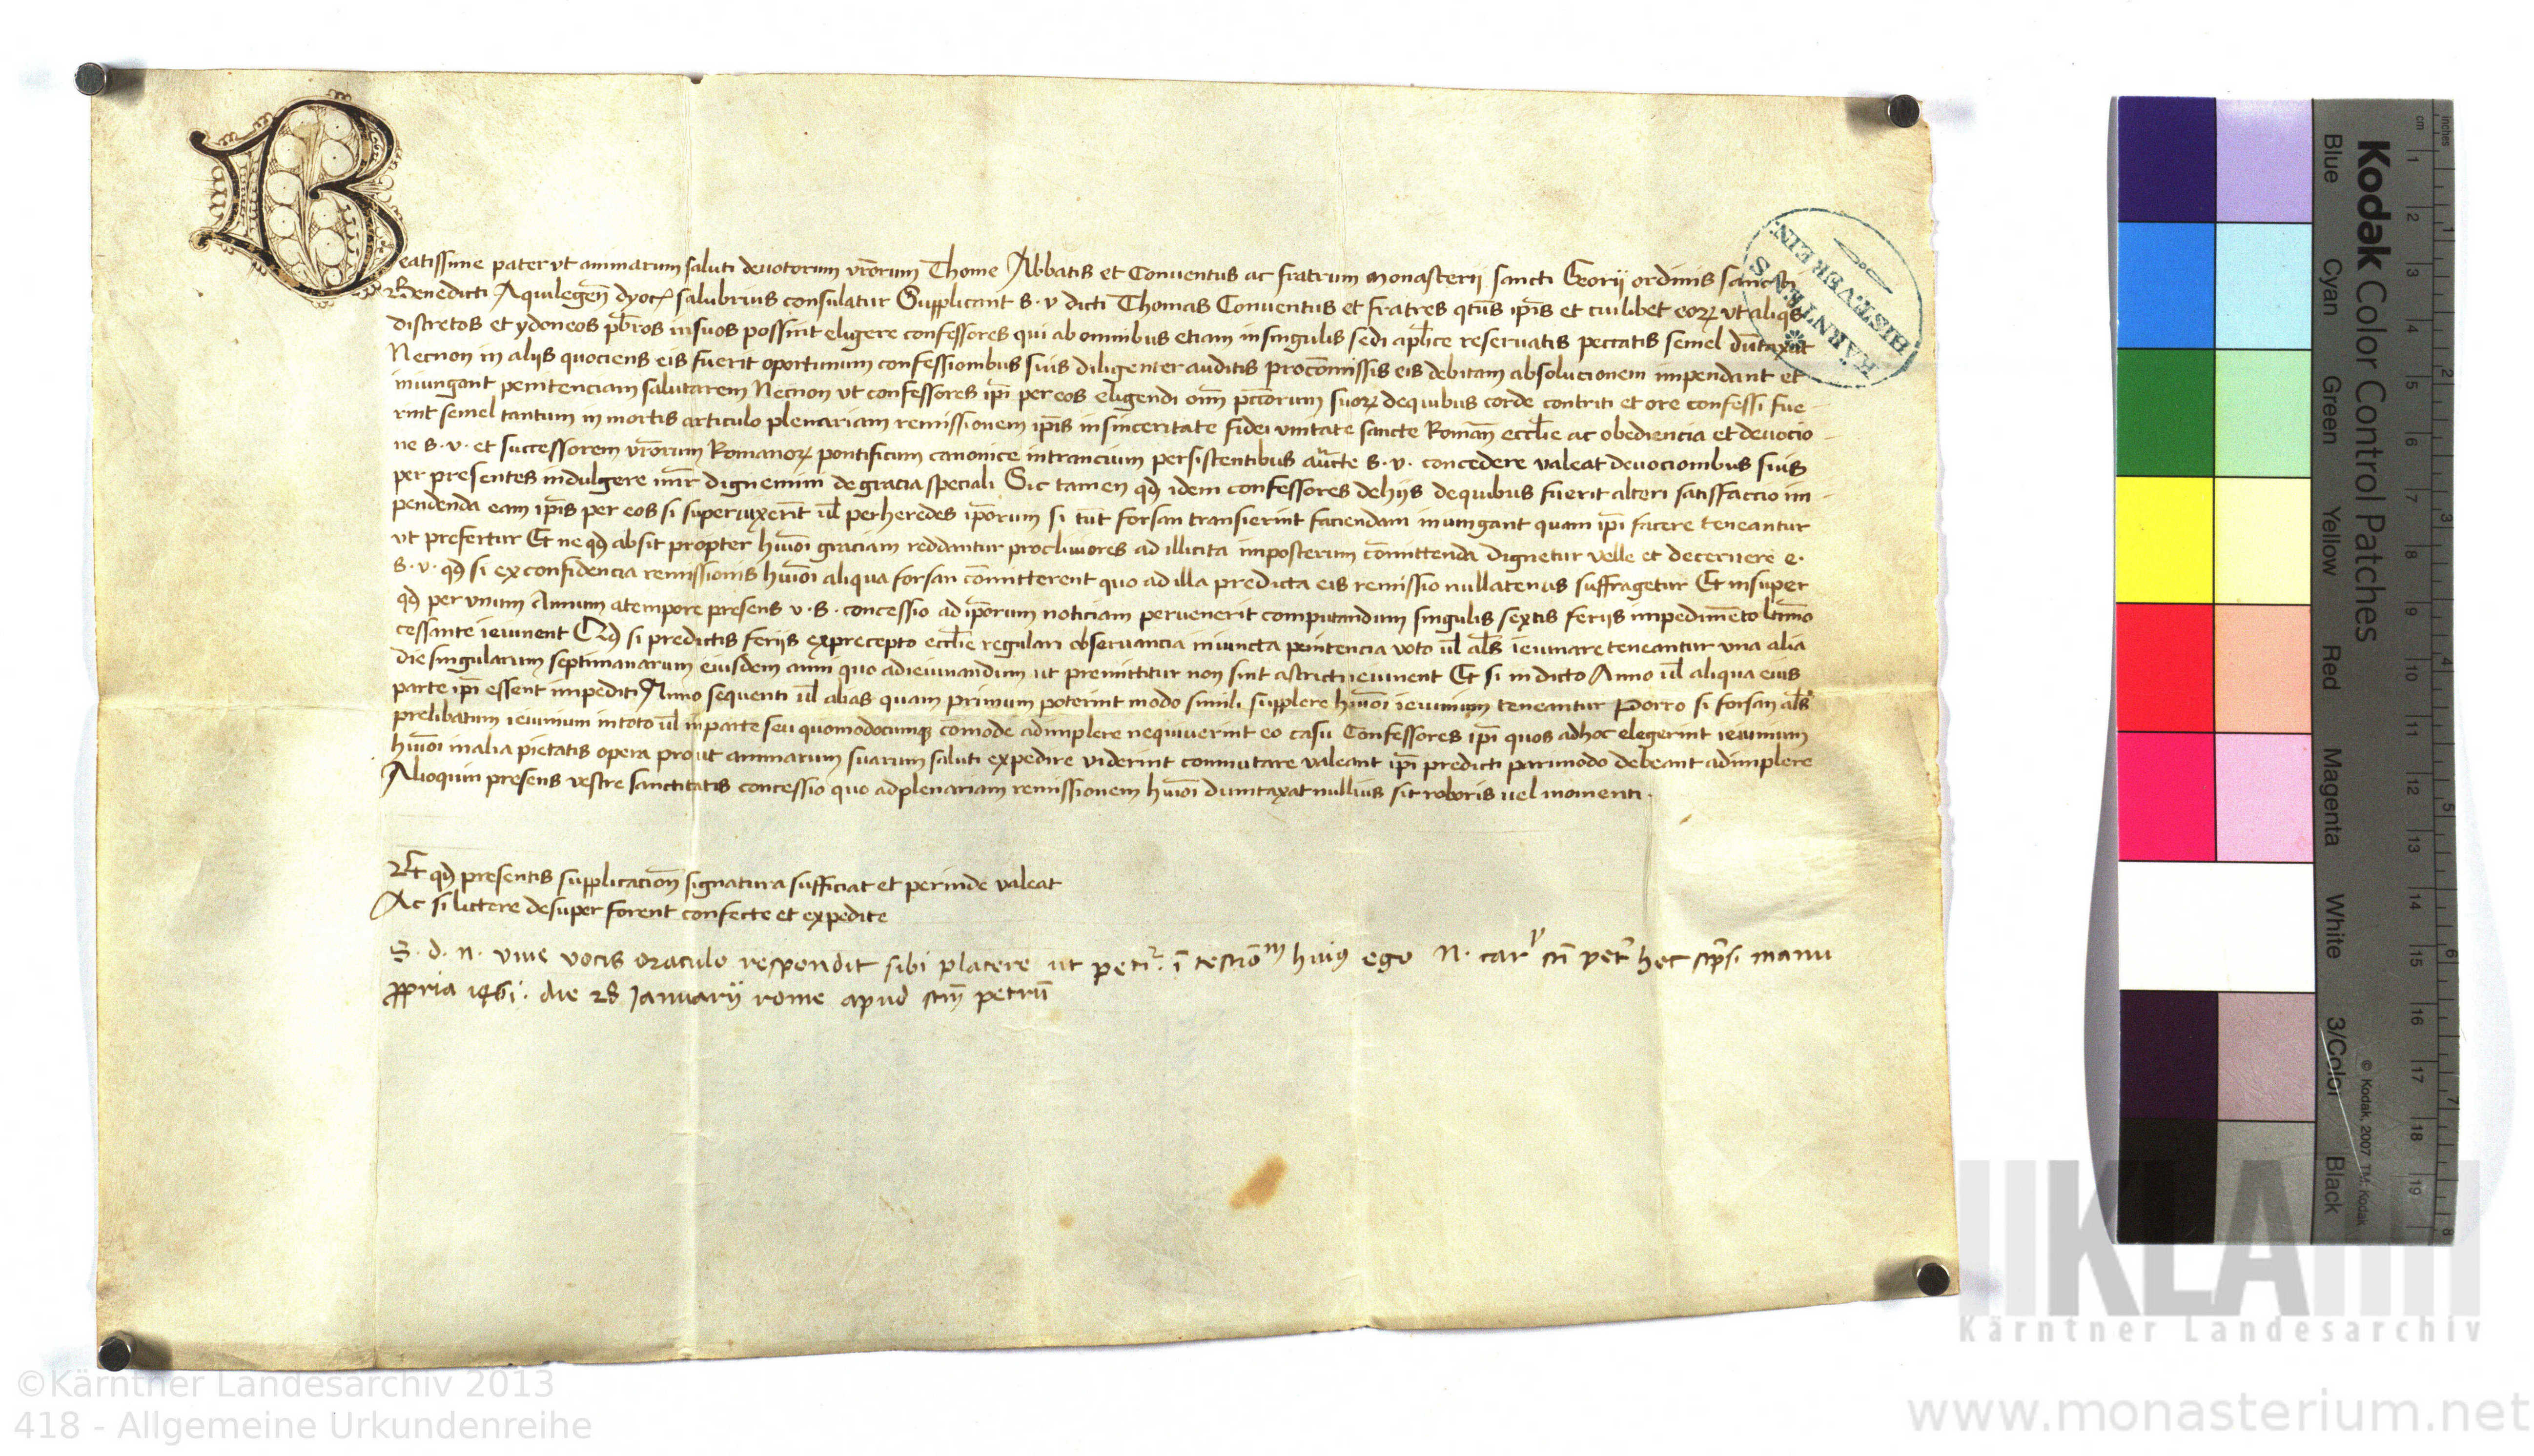 Beatissime pater vt animarum saluti deuotorum vr̄orum Thome Abbatis et Conuentus ac fratrum monasterij sancti Georij ordinis sancti
Benedicti Aquilegeñ dyoc̄ salubrius consulatur Supplicant S. v dicti Thomas Conuentus et fratres qtn̄s ip̄is et cuilibet eorꝝ vt aliqs
discretos et ydoneos pb̄ros in suos possint eligere confessores qui ab omnibus etiam in singulis sedi apl̄ice reseruatis peccatis semel dūtaxat
Necnon in alijs quociens eis fuerit oportunum confessionibus suis diligenter auditis pro com̄issis eis debitam absolucionem impendant et
iniungant penitenciam salutarem Necnon vt confessores ip̄i per eos eligendi om̄ pcc̄orum suorꝝ de quibus corde contriti et ore confessi fue-
rint semel tantum in mortis articulo plenariam remissionem ip̄is in sinceritate fidei vnitate sancte Romañ eccl̄ie ac obediencia et deuocio-
ne S. v. et successorem vr̄orum Romanorꝝ pontificum canonice intrancium persistentibus auc̄te S. v. concedere valeat deuocionibus suis
per presentes indulgere mīr dignemini de gracia speciali Sic tamen qđ idem confessores de hijs de quibus fuerit alteri satisfaccio im-
pendenda eam ip̄is per eos si superuixerīt ul̄ per heredes ip̄orum si tūt forsan transierint faciendam iniungant quam ip̄i facere teneantur
vt prefertur Et ne qđ absit propter hm̄oi graciam reddantur procliuiores ad illicita imposterum com̄ittenda dignetur velle et decernere e.
S. v. qđ si ex confidencia remissionis hm̄oi aliqua forsan com̄itterent quo ad illa predicta eis remissio nullatenus suffragetur Et insuper
qđ per vnum Annum a tempore presens v. S. concessio ad ip̄orum noticiam peruenerit computandum singulis sextis ferijs impedimēto ltīmo
cessante ieiunent Qđ si predictis ferijs ex precepto eccl̄ie regulari obseruancia iniuncta penitencia voto ul̄ al̄s ieiunare teneantur vna alia
die singularum septimanarum eiusdem anni quo ad ieiunandum ut premittitur non sint astricti ieiunent Et si in dicto Anno ul̄ aliqua eius
parte ip̄i essent impediti Anno sequenti ul̄ alias quam primum poterint modo simili supplere hm̄oi ieiunium teneantur Porro si forsan al̄s
prelibatum ieiunium in toto ul̄ in parte seu quomodocunqꝫ com̄ode adimplere nequiuerint eo casu Confessores ip̄i quos ad hoc elegerint ieiunium
hm̄oi in alia pietatis opera prout animarum suarum saluti expedire viderint commutare valeant ip̄i predicti pari modo debeant adimplere
Alioquin presens vestre sanctitatis concessio quo ad plenariam remissionem hm̄oi dumtaxat nullius sit roboris uel momenti.
Et qđ presentis supplicacioñ signatura sufficiat et perinde valeat
Ac si littere desuper forent confecte et expedite
S. d. n. viue vocis oraculo respondit sibi placere ut petir. ī testiōm huiꝯ ego N. carl sti petr̄ hec scrpsi manu
ꝓpria 1461. die 28 Januarij rome apud stm̄ petrū
KÄRNTENS
HIST. VEREIN
Kodak Color Control Patches
Blue Cyan Green Yellow Red Magenta White 3/Color Black
© Kodak, 2007 TM: Kodak
inches 1 2 3 4 5 6 7 8
cm 1 2 3 4 5 6 7 8 9 10 11 12 13 14 15 16 17 18 19
KLA
Kärntner Landesarchiv
©Kärntner Landesarchiv 2013
418 - Allgemeine Urkundenreihe
www.monasterium.net